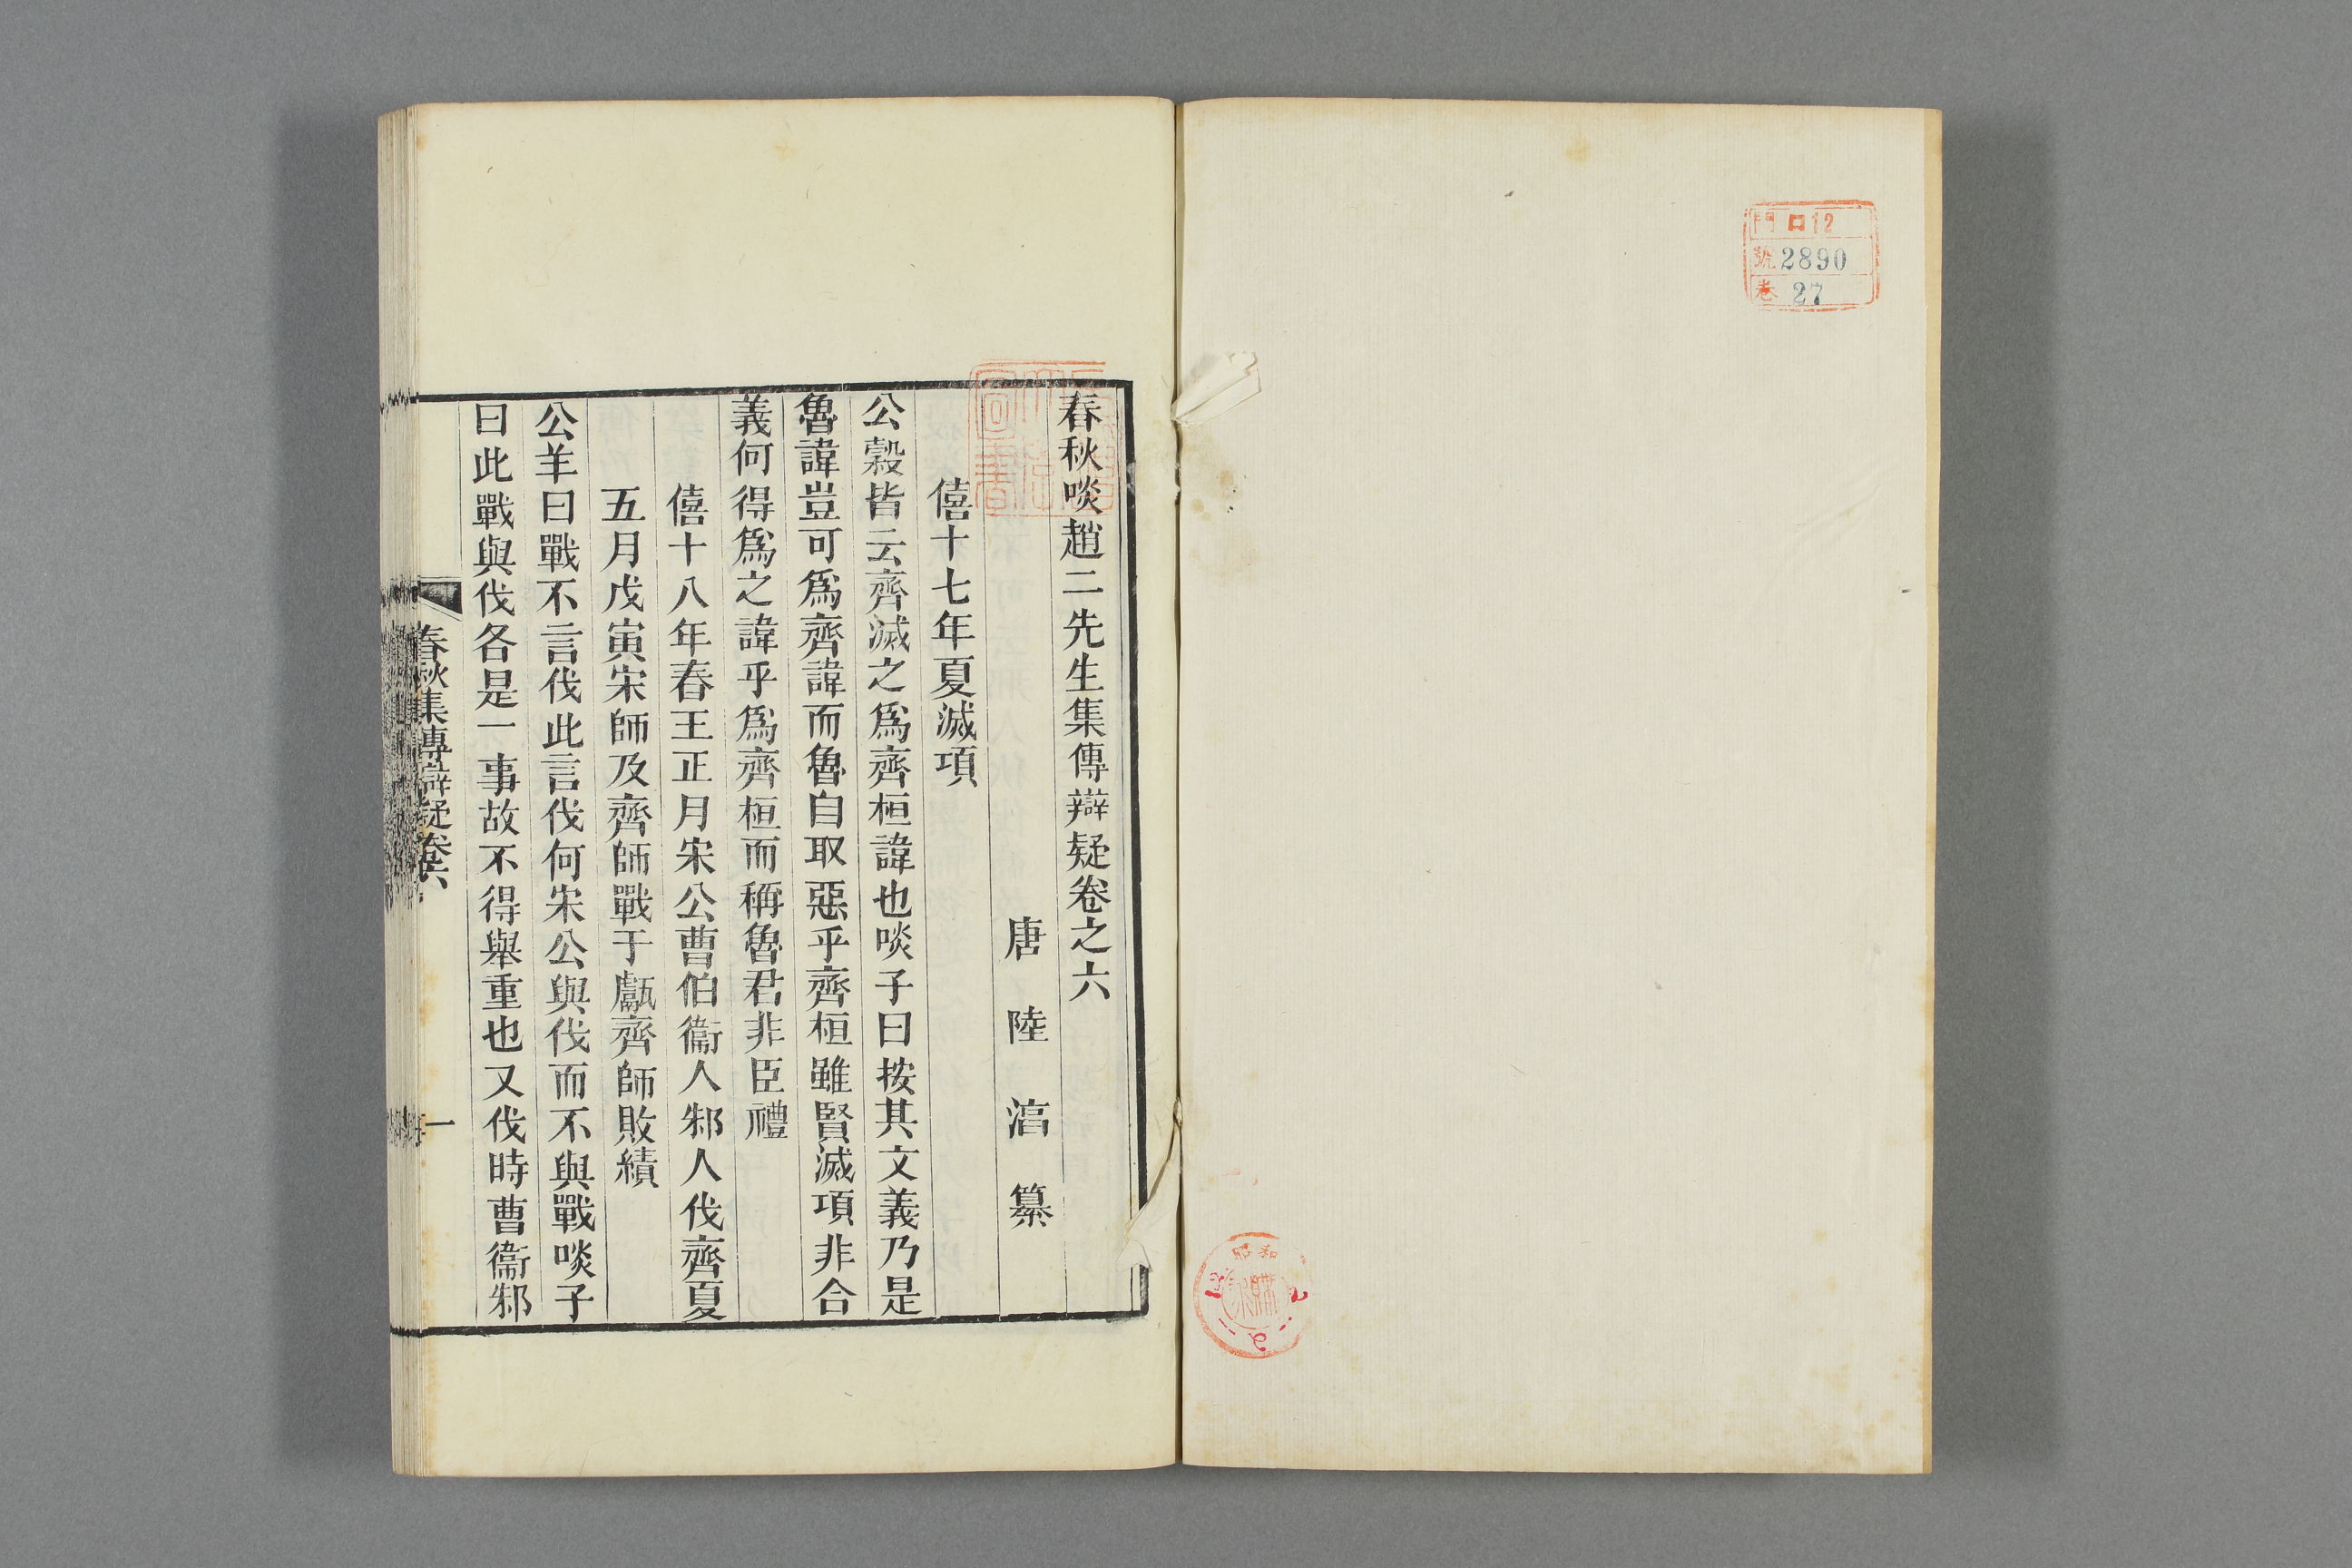 門 口12
號 2890
卷 27
春秋啖趙二先生集傳辯疑卷之六
唐 陸 淳 纂
僖十七年夏滅項
公穀皆云齊滅之爲齊桓諱也啖子曰按其文義乃是
魯諱豈可爲齊諱而魯自取惡乎齊桓雖賢滅項非合
義何得爲之諱乎爲齊桓而稱魯君非臣禮
僖十八年春王正月宋公曹伯衞人邾人伐齊夏
五月戊寅宋師及齊師戰于甗齊師敗績
公羊曰戰不言伐此言伐何宋公與伐而不與戰啖子
曰此戰與伐各是一事故不得舉重也又伐時曹衞邾
春秋集傳辯疑卷六
一